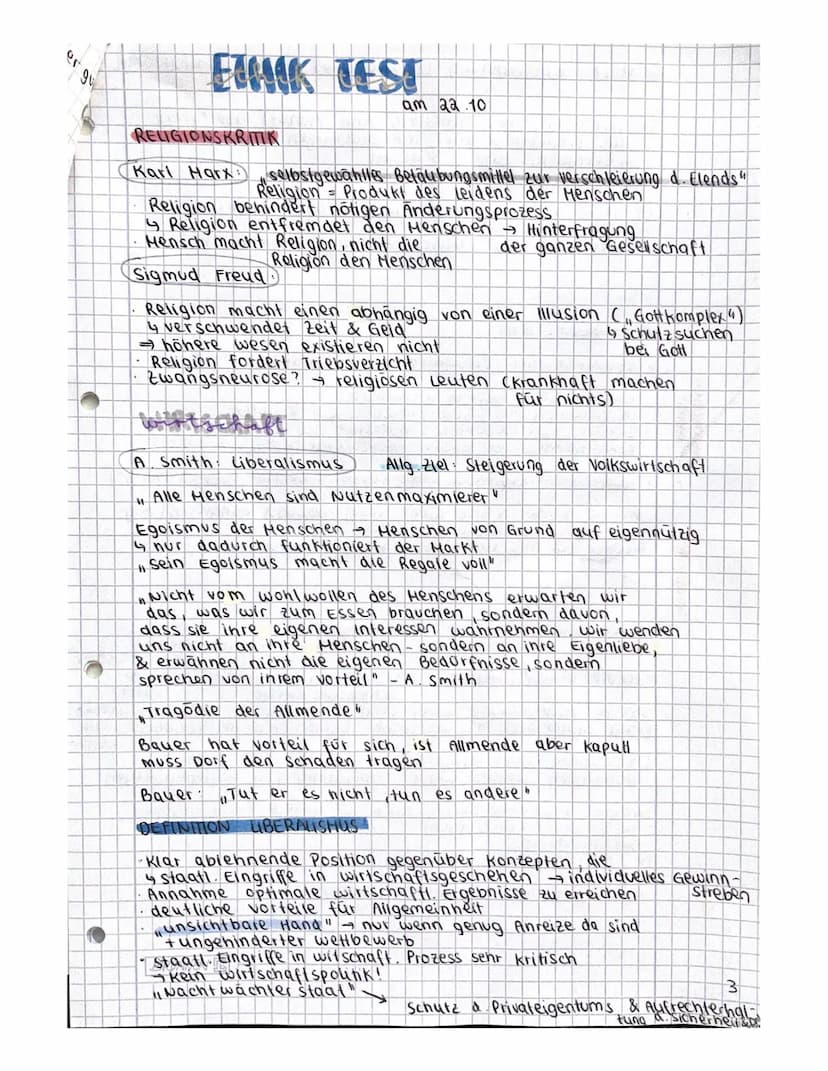 er
gu
ETHIK TEST
ethik test
am 22.10
RELIGIONSKRITIK
Karl Marx: „selbstgewähltes Betäubungsmittel zur Verschleierung d. Elends“
Religion = Produkt des Leidens der Menschen
· Religion behindert nötigen Änderungsprozess
↳ Religion entfremdet den Menschen → Hinterfragung
der ganzen Gesellschaft
· Mensch macht Religion, nicht die
Religion den Menschen
Sigmud Freud:
· Religion macht einen abhängig von einer Illusion („Gottkomplex“)
↳ verschwendet Zeit & Geld
↳ Schutz suchen
bei Gott
⇒ höhere Wesen existieren nicht
· Religion fordert Triebsverzicht
· Zwangsneurose? → religiösen Leuten (krankhaft machen
für nichts)
Wirtschaft
A. Smith: Liberalismus Allg. Ziel: Steigerung der Volkswirtschaft
„Alle Menschen sind Nutzenmaximierer“
Egoismus der Menschen → Menschen von Grund auf eigennützig
↳ nur dadurch funktioniert der Markt
„Sein Egoismus macht die Regale voll“
„Nicht vom Wohlwollen des Menschens erwarten wir
das, was wir zum Essen brauchen, sondern davon,
dass sie ihre eigenen Interessen wahrnehmen. Wir wenden
uns nicht an ihre Menschen- sondern an ihre Eigenliebe,
& erwähnen nicht die eigenen Bedürfnisse, sondern
sprechen von ihrem Vorteil“ - A. Smith
„Tragödie der Allmende“
Bauer hat Vorteil für sich, ist Allmende aber kaputt
muss Dorf den Schaden tragen
Bauer: „Tut er es nicht, tun es andere“
DEFINITION LIBERALISMUS
· Klar ablehnende Position gegenüber Konzepten, die
↳ staatl. Eingriffe in Wirtschaftsgeschehen → individuelles Gewinn-
streben
· Annahme optimale wirtschaftl. Ergebnisse zu erreichen
· deutliche Vorteile für Allgemeinheit
· „unsichtbare Hand“ → nur wenn genug Anreize da sind
+ ungehinderter Wettbewerb
· staatl. Eingriffe in witschaft. Prozess sehr kritisch
→ kein Wirtschaftspolitik!
„Nachtwächterstaat“
Schutz d. Privateigentums & Aufrechterhal-
tung d. Sicherheit
3